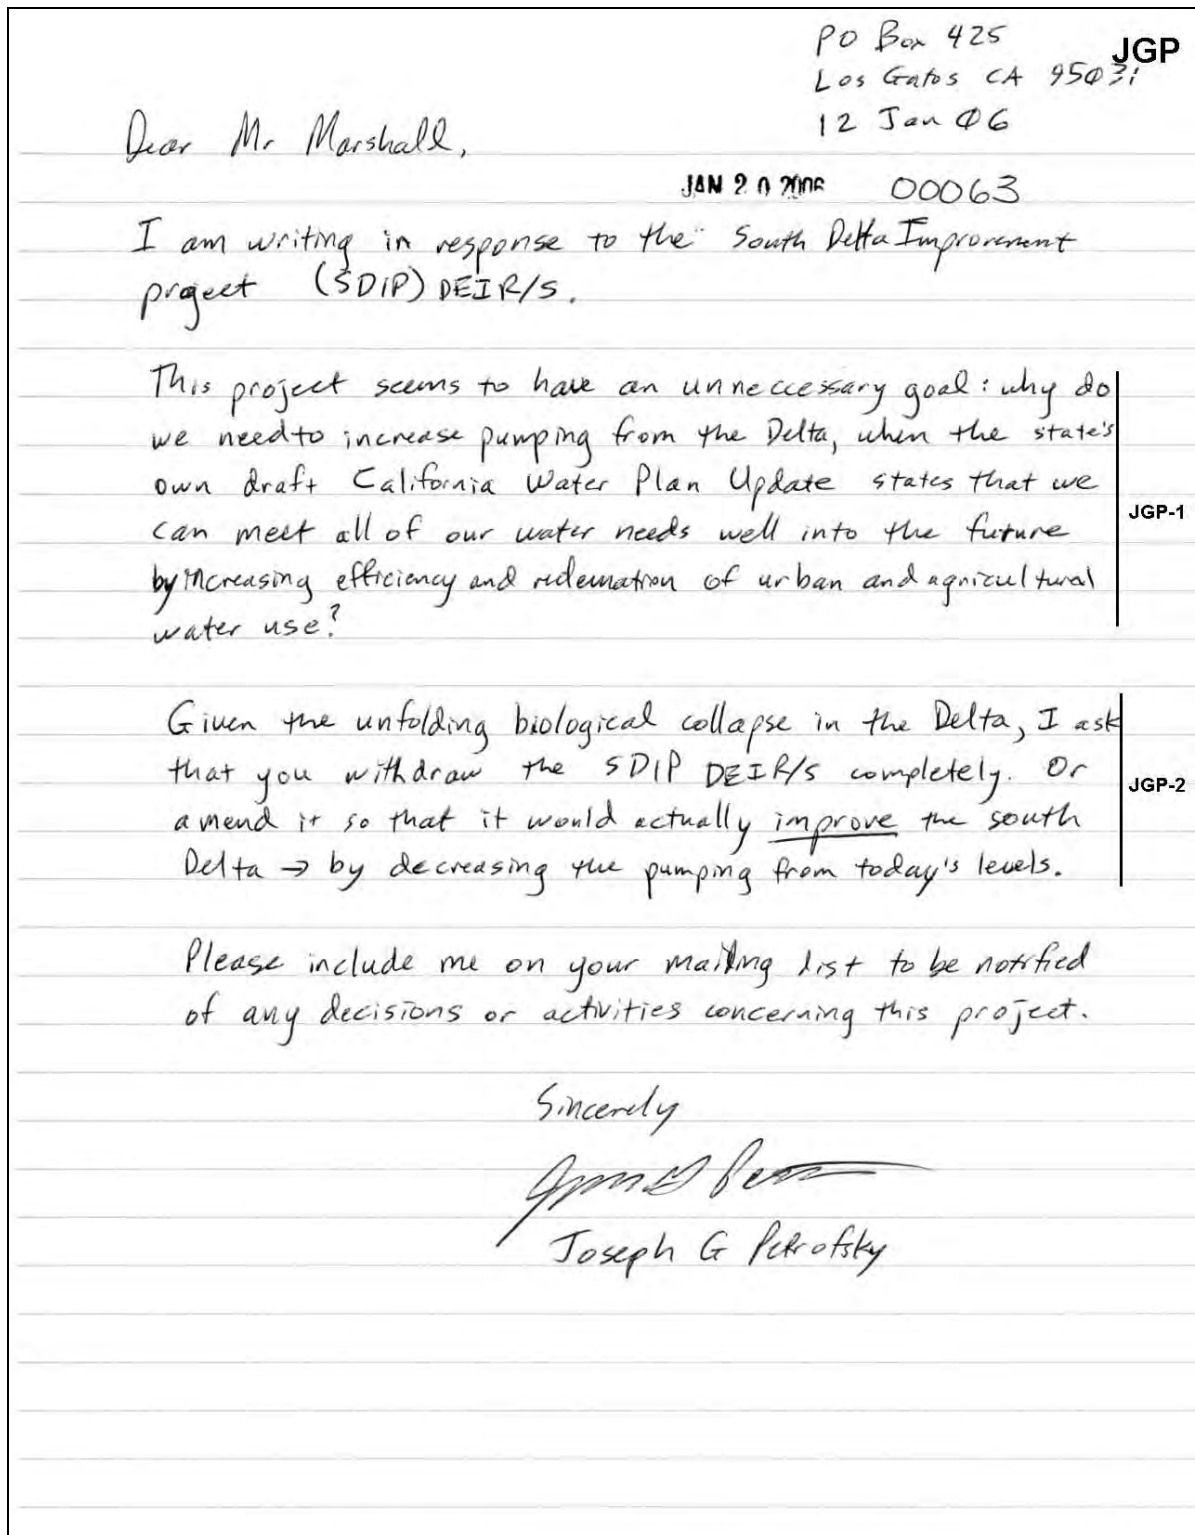 PO Box 425
JGP
Los Gatos CA 95031
12 Jan 06
Dear Mr Marshall,
JAN 20 2006 00063
I am writing in response to the South Delta Improvement
project (SDIP) DEIR/S.
This project seems to have an unneccessary goal: why do
we need to increase pumping from the Delta, when the state's
own draft California Water Plan Update states that we
can meet all of our water needs well into the future
JGP-1
by increasing efficiency and redemation of urban and agricultural
water use?
Given the unfolding biological collapse in the Delta, I ask
that you withdraw the SDIP DEIR/S completely. Or
JGP-2
amend it so that it would actually improve the south
Delta → by decreasing the pumping from today's levels.
Please include me on your mailing list to be notified
of any decisions or activities concerning this project.
Sincerely
Joseph G Petrofsky